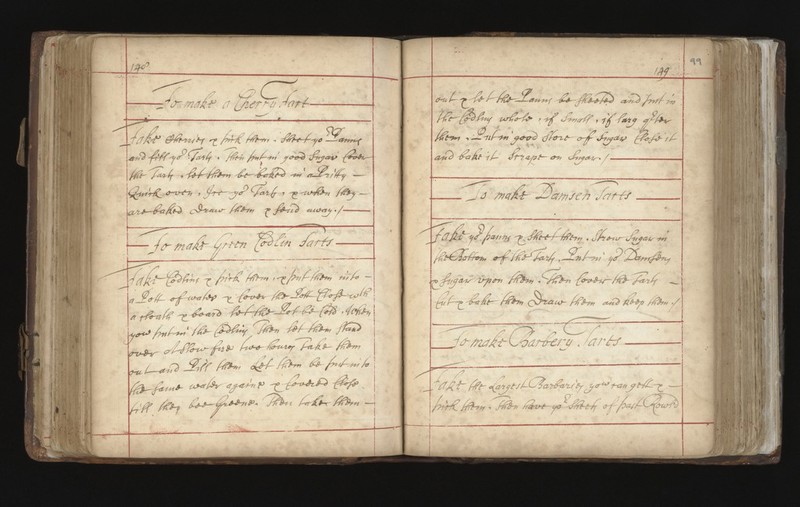 148
To make a Cherry Tart
Take Cherries & pick them. Sheet yor Panns
and fill yor Tarts. Then put in good Sugar Cover
the Tarts. Let them be baked in a Pritty
Quick oven. Ice yor Tarts, & when they
are baked Draw them & send away./
To make Green Codlin Tarts
Take Codlins & pick them, & put them into
a Pott of water & Cover the Pott Close with
a Cloath & board let the Pot be Cold. When
you put in the Codlins, Then let them stand
over a slow fire two hours Take them
out and Pill them Let them be put into
the same water againe & Covered Close
till they bee Greene. Then take them
149
99
out & let the Panns be Sheeted and put in
the Codlins whole, if Small, if larg qter
them. Put in good Store off Sugar Close it
and bake it Scrape on Sugar./
To make Damsen Tarts
Take yor panns & Sheet them. Strow Sugar in
the Bottom of the Tarts. Put in yor Damsons
& Sugar upon them. Then Cover the Tarts
Cut & bake them Draw them and keep them./
To make Barbery Tarts
Take the Largest Barbaries you can gett &
pick them. Then have yor Sheets of past Rowld